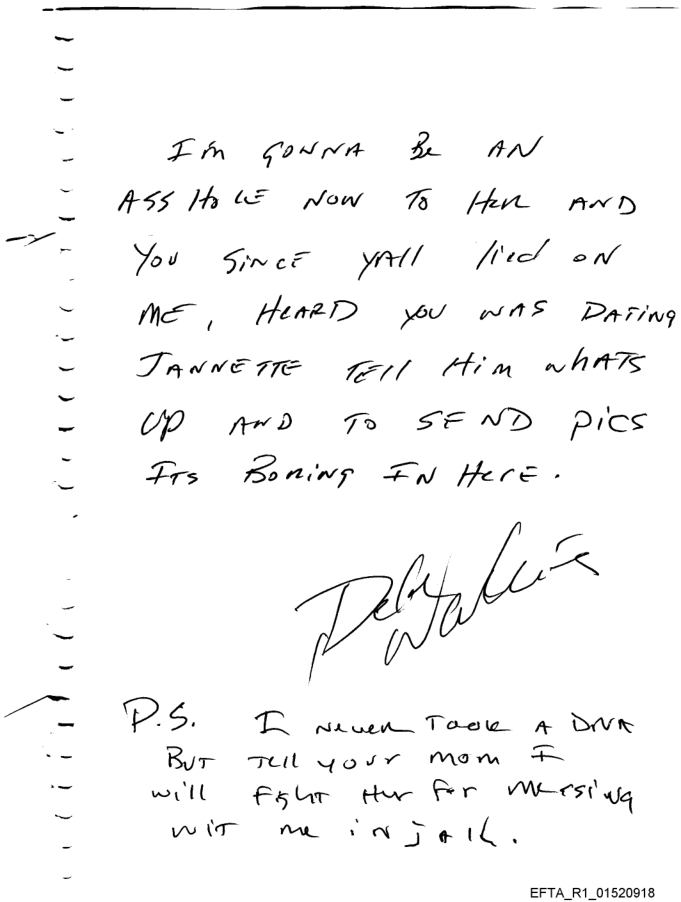 I'm GONNA BE AN
ASSHOLE NOW TO HER AND
YOU SINCE YAll lied ON
ME, HEARD YOU WAS DATING
JANNETTE TEll Him WhATS
UP AND TO SEND PICS
ITS BORING IN HERE.
P.S. I NEVER TOOK A DNA
BUT TELL YOUR MOM I
will FIGHT HER FOR MESSING
WIT ME IN JAIL.
EFTA_R1_01520918